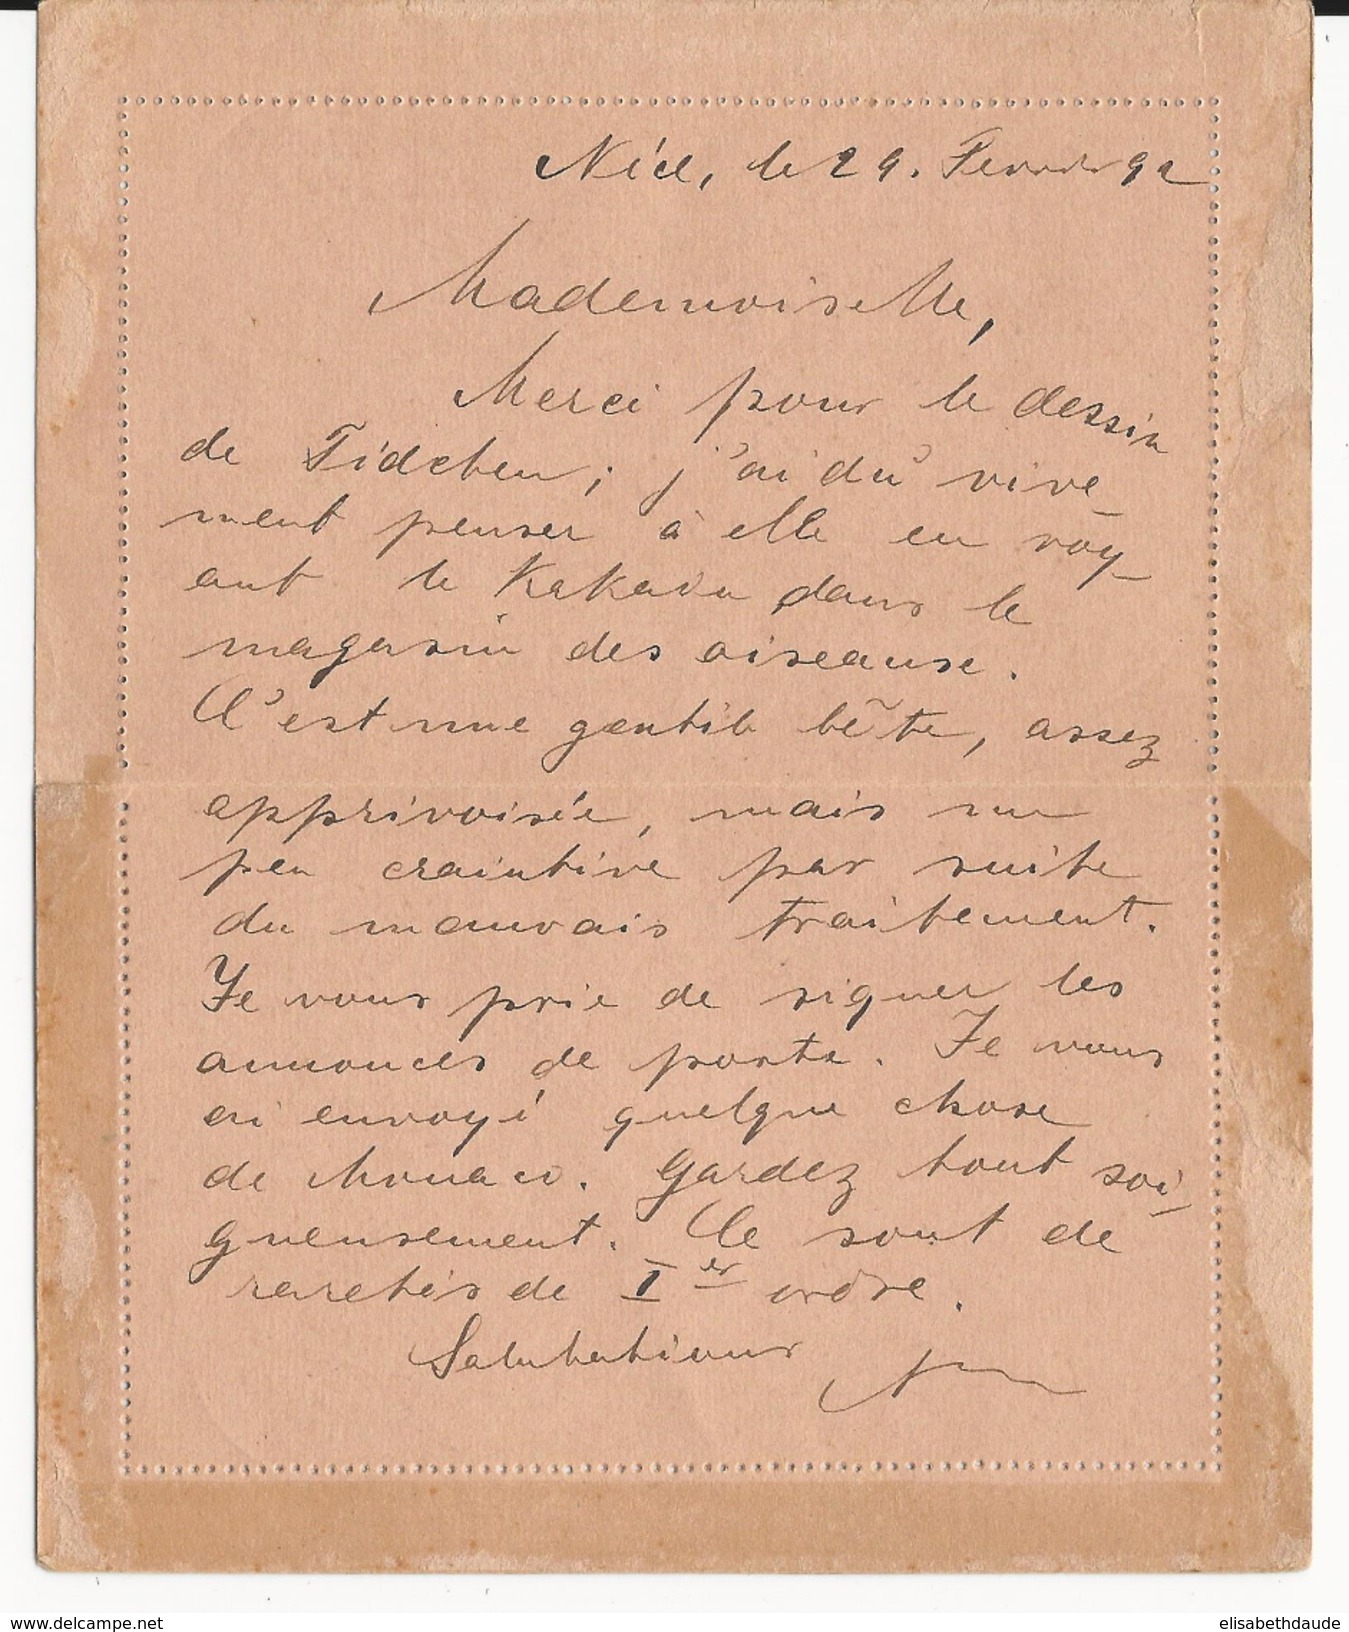 Nice, le 29. Fevrier 92
Mademoiselle,
Merci pour le dessin
de Fidchen; j'ai dû vive-
ment penser à elle en voy-
ant le Kakadu dans le
magasin des oiseause.
C'est une gentile bête, assez
apprivoisée, mais un
peu craintive par suite
du mauvais traitement.
Je vous prie de signer les
annonces de poste. Je vous
ai envoyé quelque chose
de Monaco. Gardez tout soi-
gneusement. Ce sont de
raretés de Ier ordre.
Salutations
elisabethdaude